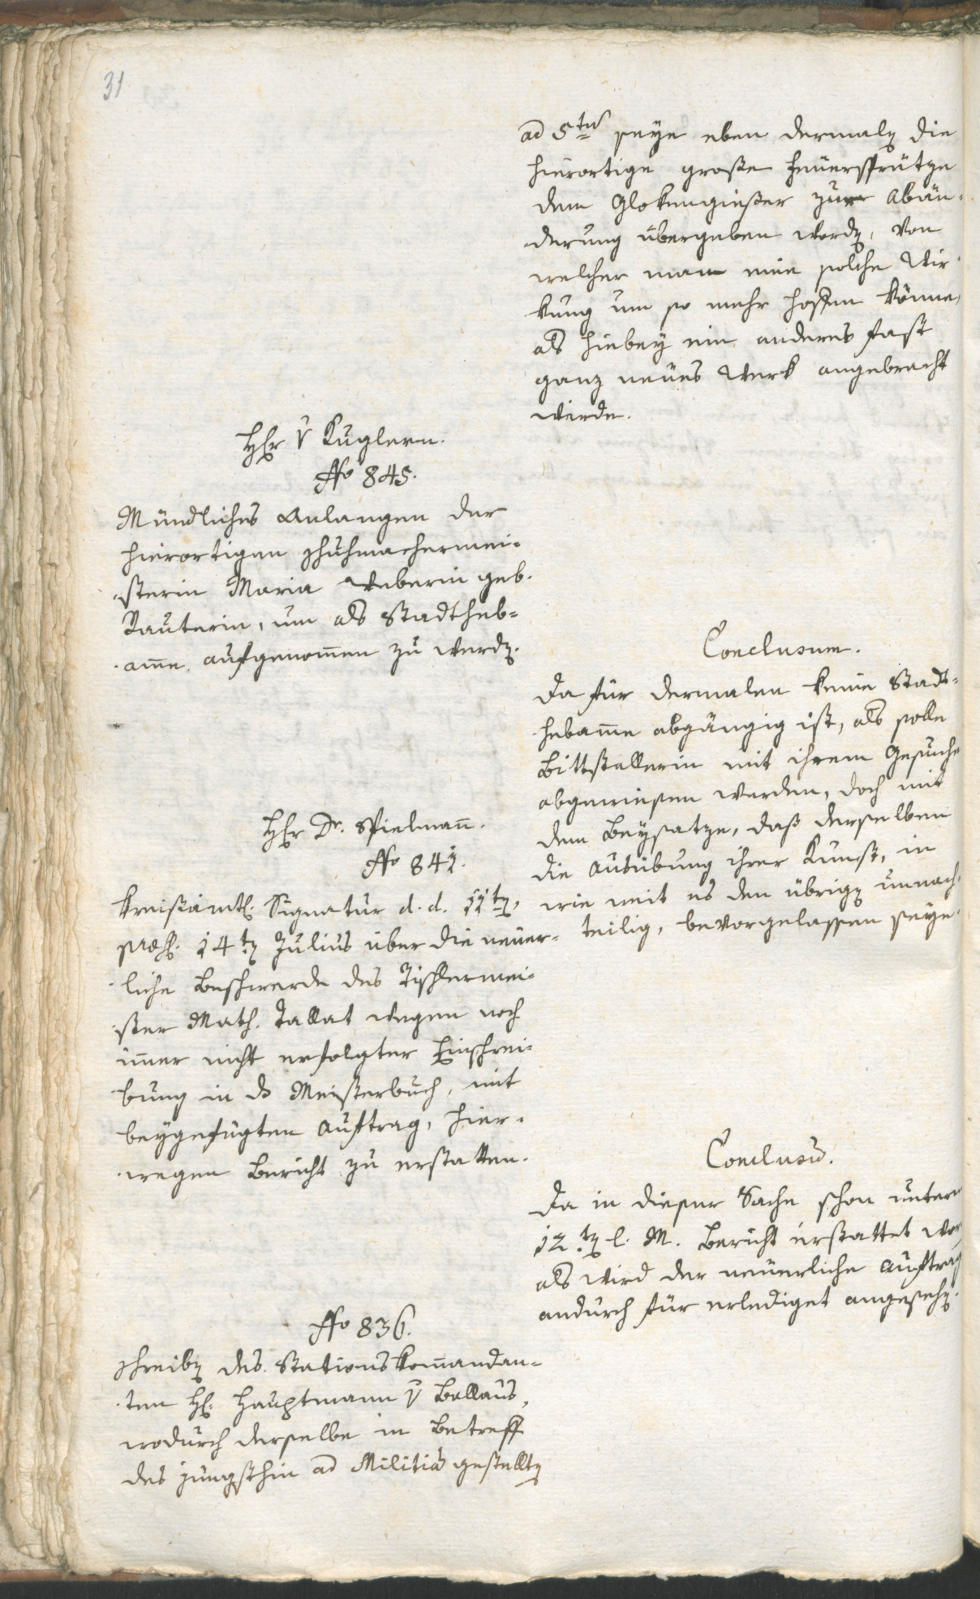 31
ad 5tum seÿe eben dermalen die
hierortige große Feuerspritze
dem Glokengießer zur Abän-
derung übergeben worden, von
welcher man eine solche Wir-
kung um so mehr hoffen könne,
als hiebeÿ ein anderes fast
ganz neues Werk angebracht
würde.
HEr v Kuglern.
No 845.
Mündliches Anlangen der
hierortigen Schuhmachermei-
sterin Maria Weberin geb.
Rauterin, um als Stadtheb-
ame aufgenomen zu werden.
Conclusum.
Da für dermalen keine Stadt-
hebame abgängig ist, als solle
Bittstellerin mit ihrem Gesuche
abgewiesen werden, doch mit
dem Beÿsatze, daß derselben
die Ausübung ihrer Kunst, in
wie weit es den übrigen unnach-
teilig, bevorgelassen seÿe.
HEr Dr. Spielman.
No 841.
Kreißämtl. Signatur d. d. 11ten,
præs. 14ten Julius über die neuer-
liche Beschwerde des Tischlermei-
ster Math. Tallat wegen noch
imer nicht erfolgter Einschrei-
bung in ds Meisterbuch, mit
beÿgefügten Auftrag, hier-
wegen Bericht zu erstatten.
Conclusū.
Da in dieser Sache schon unterm
12ten l. M. Bericht erstattet wor
als wird der neuerliche Auftrag
andurch für erlediget angesehen.
No 836.
Schreiben des Stationskomandan-
ten H. Hauptmann v Ballaus,
wodurch derselbe in Betreff
des jüngsthin ad Militiā gestellten